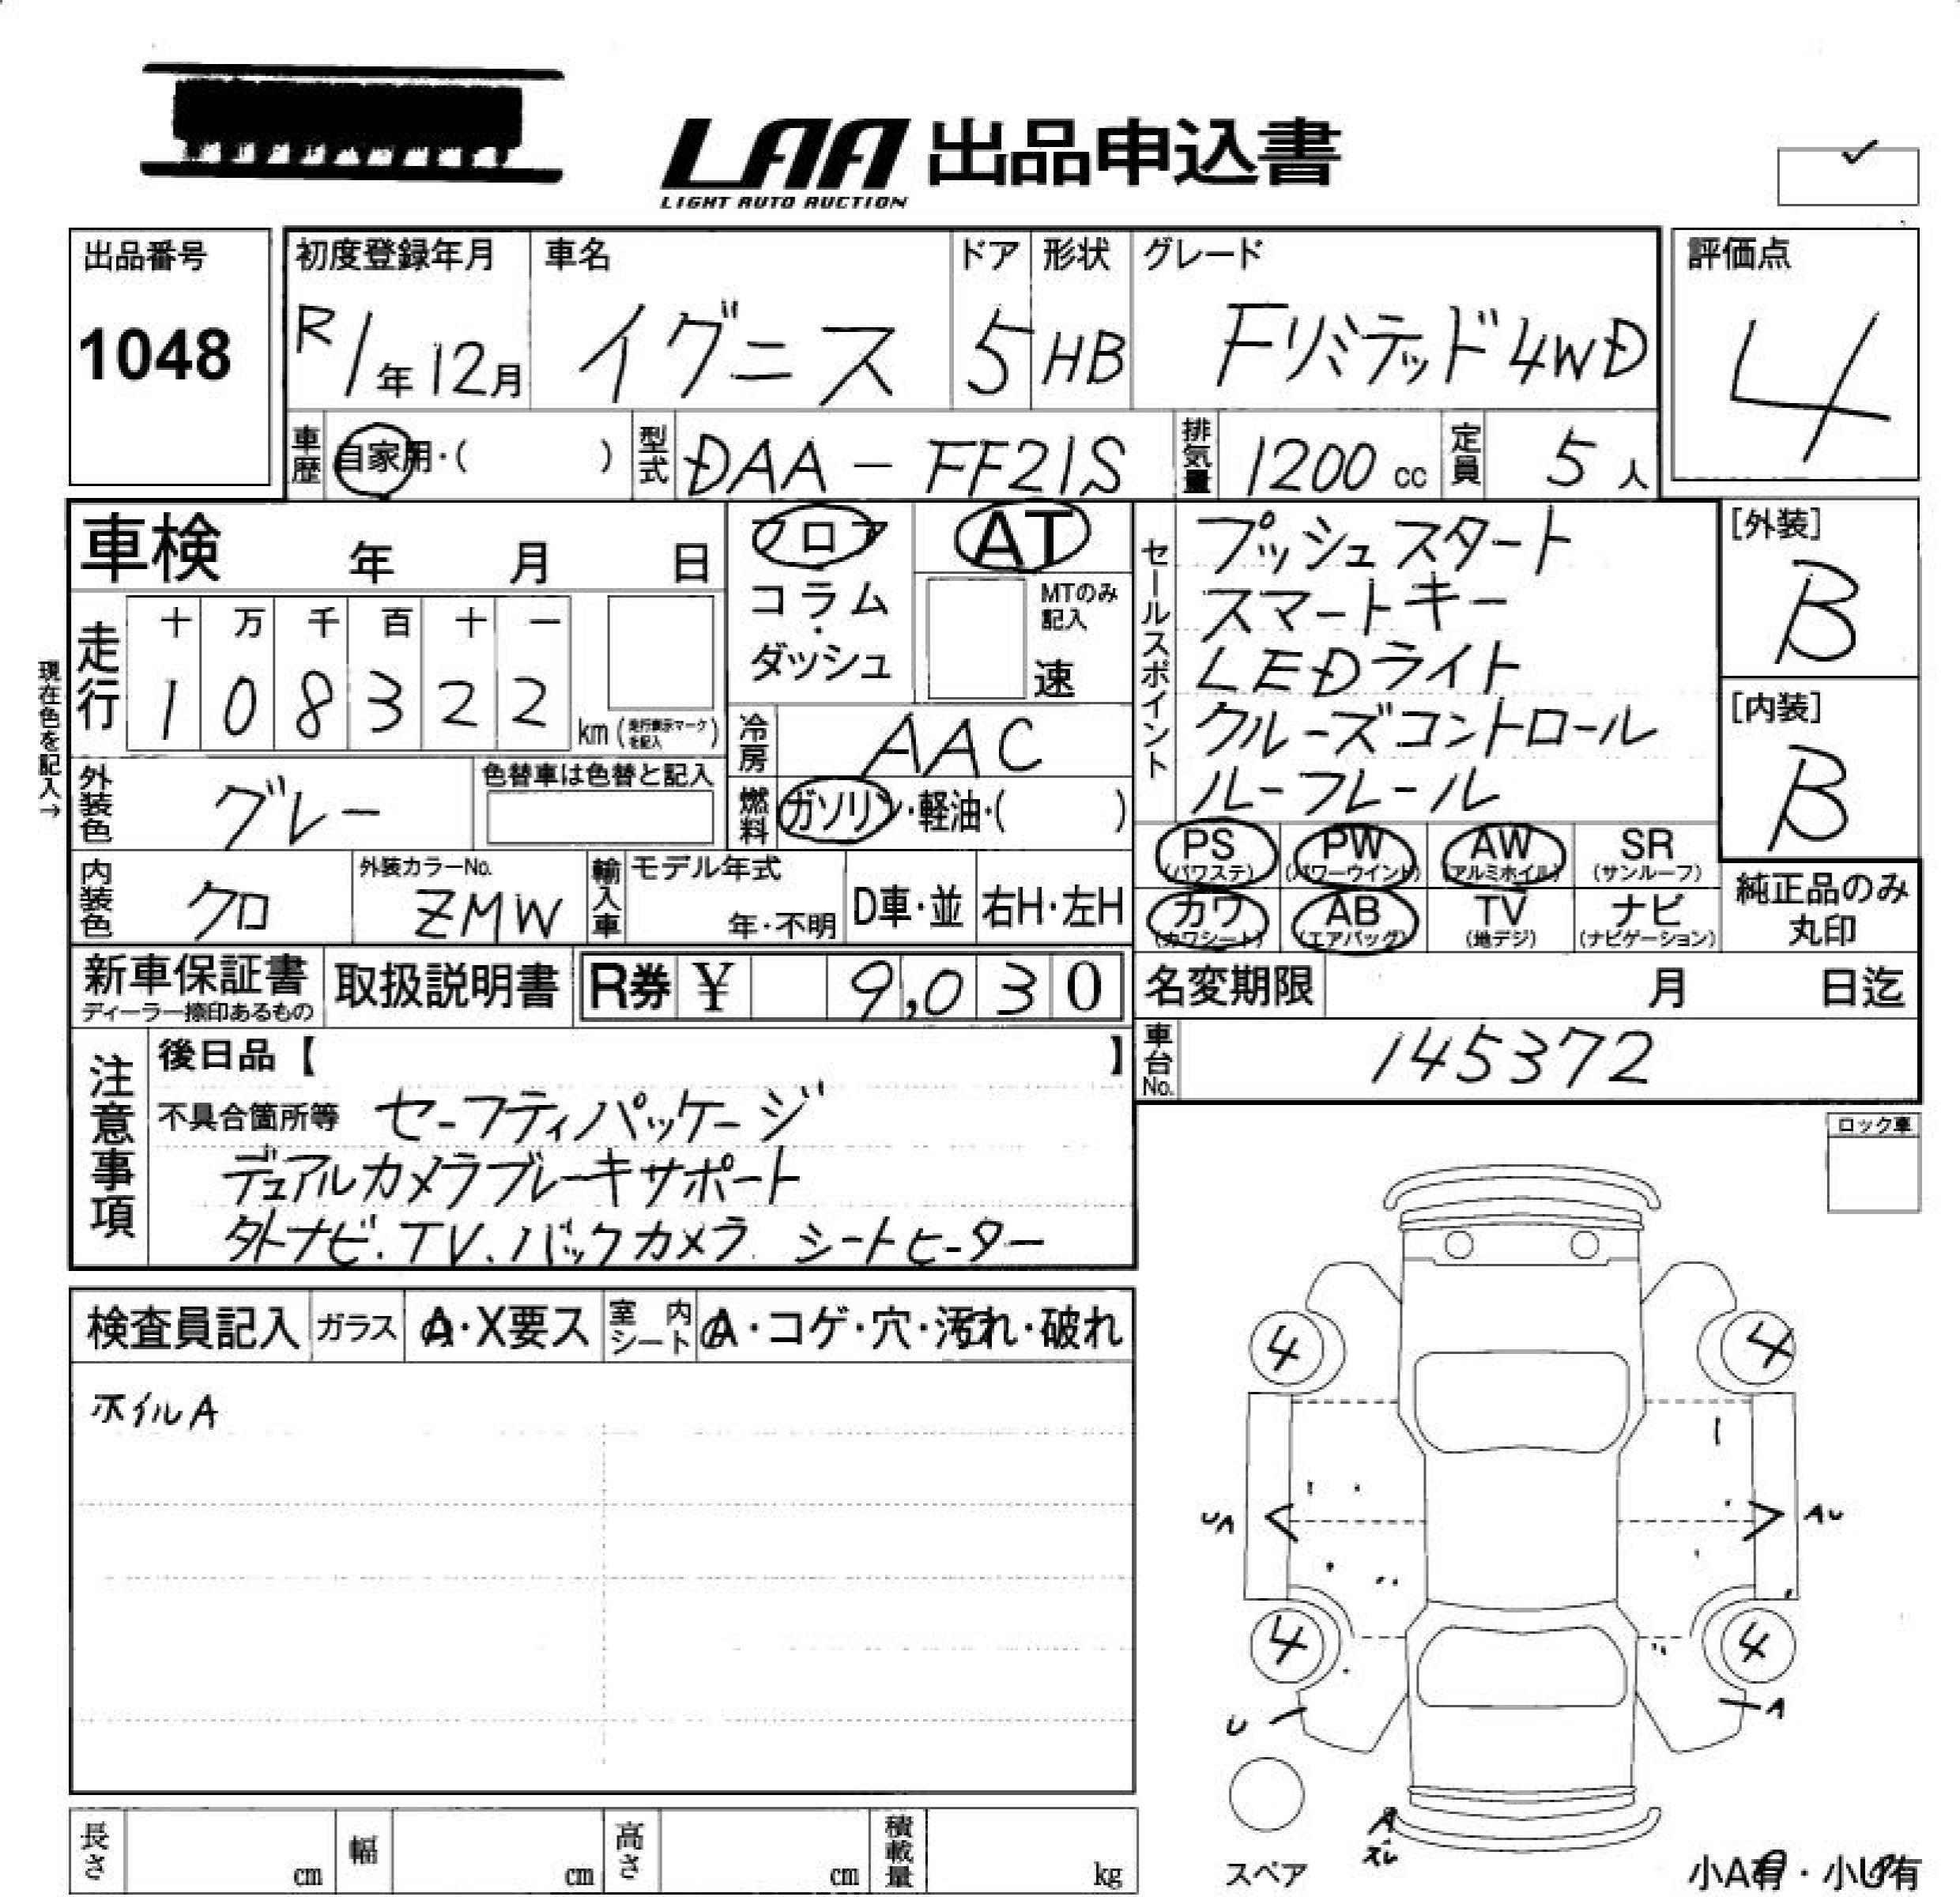 LAA 出品申込書
LIGHT AUTO AUCTION
出品番号 初度登録年月 車名 ドア 形状 グレード 評価点
1048 R1年12月 イグニス 5 HB Fリミテッド4WD 4
車歴 自家用・( ) 型式 DAA-FF21S 排気量 1200cc 定員 5人
車検 年 月 日
フロア・コラム・ダッシュ
AT
MTのみ記入
速
セールスポイント
プッシュスタート
スマートキー
LEDライト
クルーズコントロール
ルーフレール
[外装]
B
[内装]
B
現在色を記入→
走行 十 万 千 百 十 一
1 0 8 3 2 2 km (走行表示マークを記入)
冷房 AAC
外装色 グレー 色替車は色替と記入
燃料 ガソリン・軽油・( )
内装色 クロ 外装カラーNo. ZMW
輸入車 モデル年式 年・不明 D車・並 右H・左H
PS (パワステ) PW (パワーウインド) AW (アルミホイル) SR (サンルーフ)
カワ (カワシート) AB (エアバッグ) TV (地デジ) ナビ (ナビゲーション)
純正品のみ
丸印
新車保証書 ディーラー捺印あるもの 取扱説明書 R券 ¥ 9,030
名変期限 月 日迄
車台No. 145372
注意事項
後日品【 】
不具合箇所等 セーフティパッケージ
デュアルカメラブレーキサポート
外ナビ.TV.バックカメラ シートヒーター
ロック車
検査員記入 ガラス A・X要ス 室内シート A・コゲ・穴・汚れ・破れ
ホイルA
4 4
UA AU
4 4
U A
A
スレ
スペア
小A有・小U有
長さ cm 幅 cm 高さ cm 積載量 kg